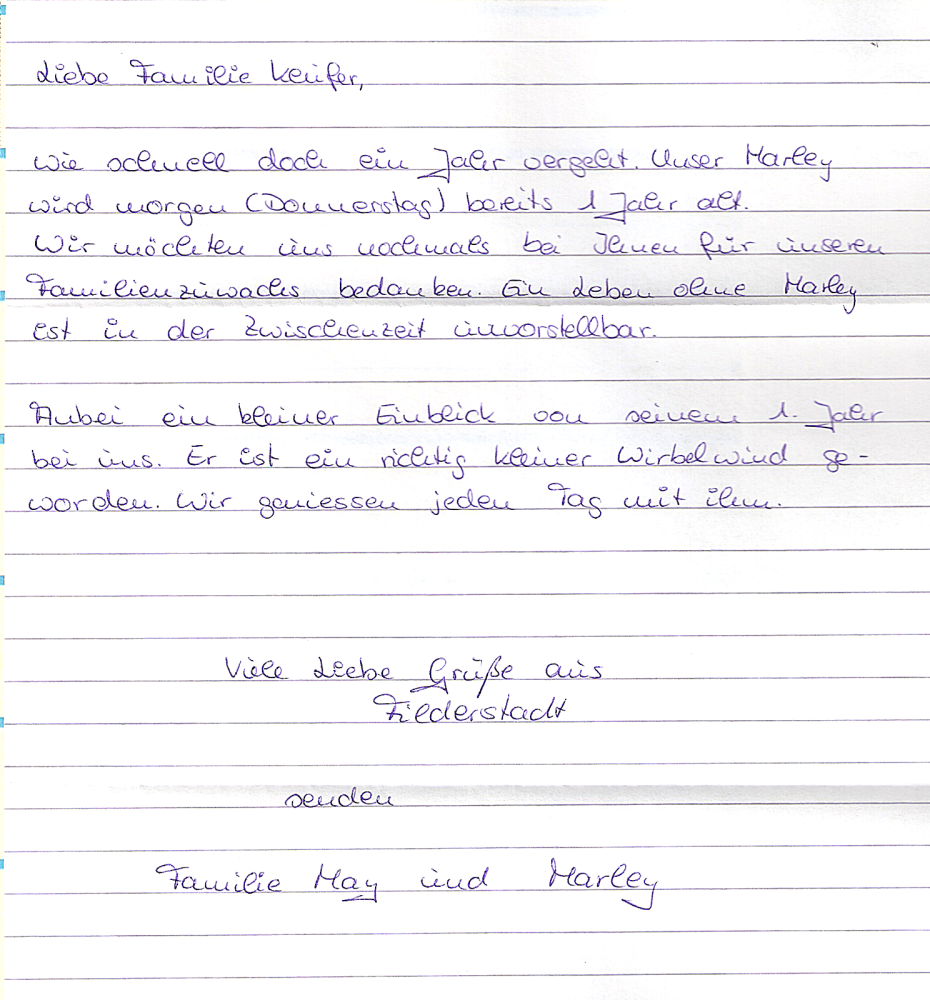 Liebe Familie Keufer,
wie schnell doch ein Jahr vergeht. Unser Marley
wird morgen (Donnerstag) bereits 1 Jahr alt.
Wir möchten uns nochmals bei Ihnen für unseren
Familienzuwachs bedanken. Ein Leben ohne Marley
ist in der Zwischenzeit unvorstellbar.
Anbei ein kleiner Einblick von seinem 1. Jahr
bei uns. Er ist ein richtig kleiner Wirbelwind ge-
worden. Wir geniessen jeden Tag mit ihm.
Viele Liebe Grüße aus
Fiederstadt
senden
Familie May und Marley